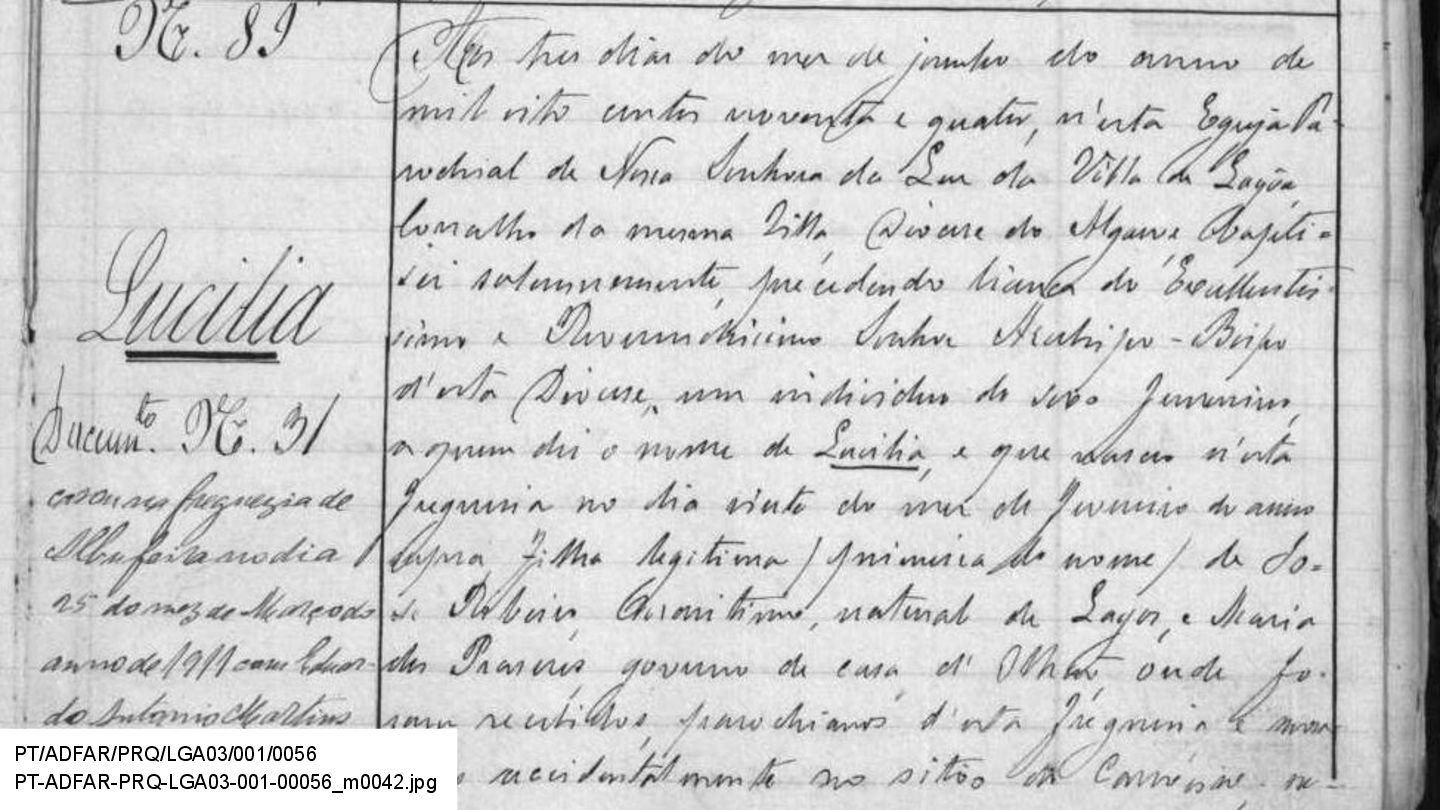 Nº. 89
Lucilia
Docum.to Nº. 31
casou na freguezia de
Albufeira no dia
25 do mez de Março do
anno de 1911 com Eduar-
do Antonio Martins
Aos tres dias do mez de junho do anno de
mil oito centos noventa e quatro, n'esta Egreja Pa-
rochial de Nossa Senhora da Luz da Villa de Lagôa,
Concelho da mesma Villa, Diocese do Algarve Baptí-
sei solemnemente, precedendo licença do Excellentis-
simo e Reverendissimo Senhor Arcebispo - Bispo
d'esta Diocese, um individuo do sexo femenino,
a quem dei o nome de Lucilia, e que nasceu n'esta
freguesia no dia vinte do mez de Fevereiro do anno
supra filha legitima (primeira do nome) de Jo-
sé Ribeiro, maritimo, natural de Lagos, e Maria
dos Praseres governo de casa d'Olhão onde fo-
ram recebidos, parochianos d'esta freguesia e mora-
accidentalmente no sitio de Carvoeiro, ne-
PT/ADFAR/PRQ/LGA03/001/0056
PT-ADFAR-PRQ-LGA03-001-00056_m0042.jpg